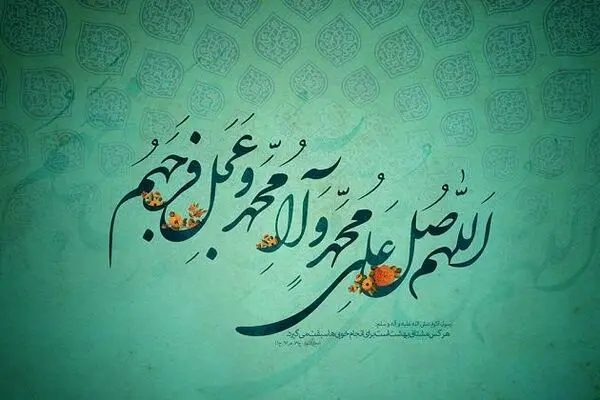 اللّٰهم صل علی محمّد و آل محمّد و عجل فرجهم
رسول اکرم صلی الله علیه و آله و سلم:
هر کس مشتاق بهشت است برای انجام خوبی ها سبقت می گیرد.